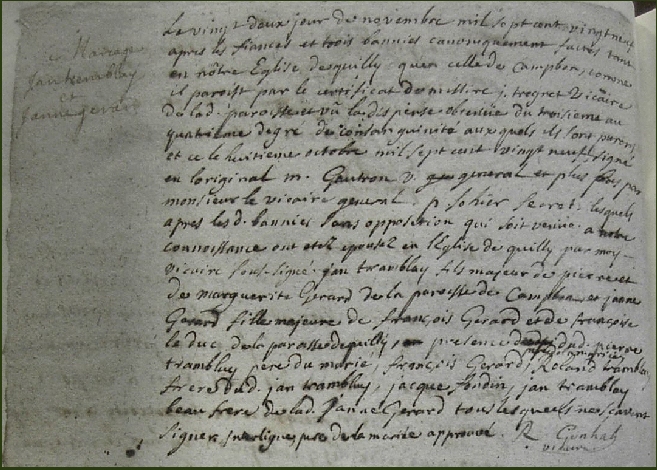 Mariage
Jan tremblay
et
Janne gerard
Le vingt deux jour de novembre mil sept cent vingt neuf
apres les fiances et trois bannies canoniquement faites tant
en nôtre Eglise desquilly quen celle de Campbon, comme
il paroist par le certificat de messire j. tregret Vicaire
de lad. paroisse et vû la dispense obtenüe du troisieme au
quatrieme degre de consanguinité auxquels ils sont parens
et ce le huitieme octobre mil sept cent vingt neuf signé
en loriginal m. Geutron v. general et plus bas par
monsieur le vicaire general. p sohier Secret. lesquels
apres lesd. bannies sans opposition qui soit venüe a notre
connoissance ont etez epousez en l'église de quilly par moy
vicaire sous-signé. jan tramblay fils majeur de pierre et
de marguerite Gerard de la paroisse de Campbon et janne
Gerard fille majeure de françois Gerard et de françoise
le duc de la paroisse de quilly, en presence dud. pierre
tramblay pere du marié, françois Gerard, Roland tramblay
frere dud. jan tramblay, jacque fondin, jan tramblay
beau frere de lad. Janne Gerard tous lesquels ne scavent
signer, interligne pere de la mariée approuvé. R
vicaire